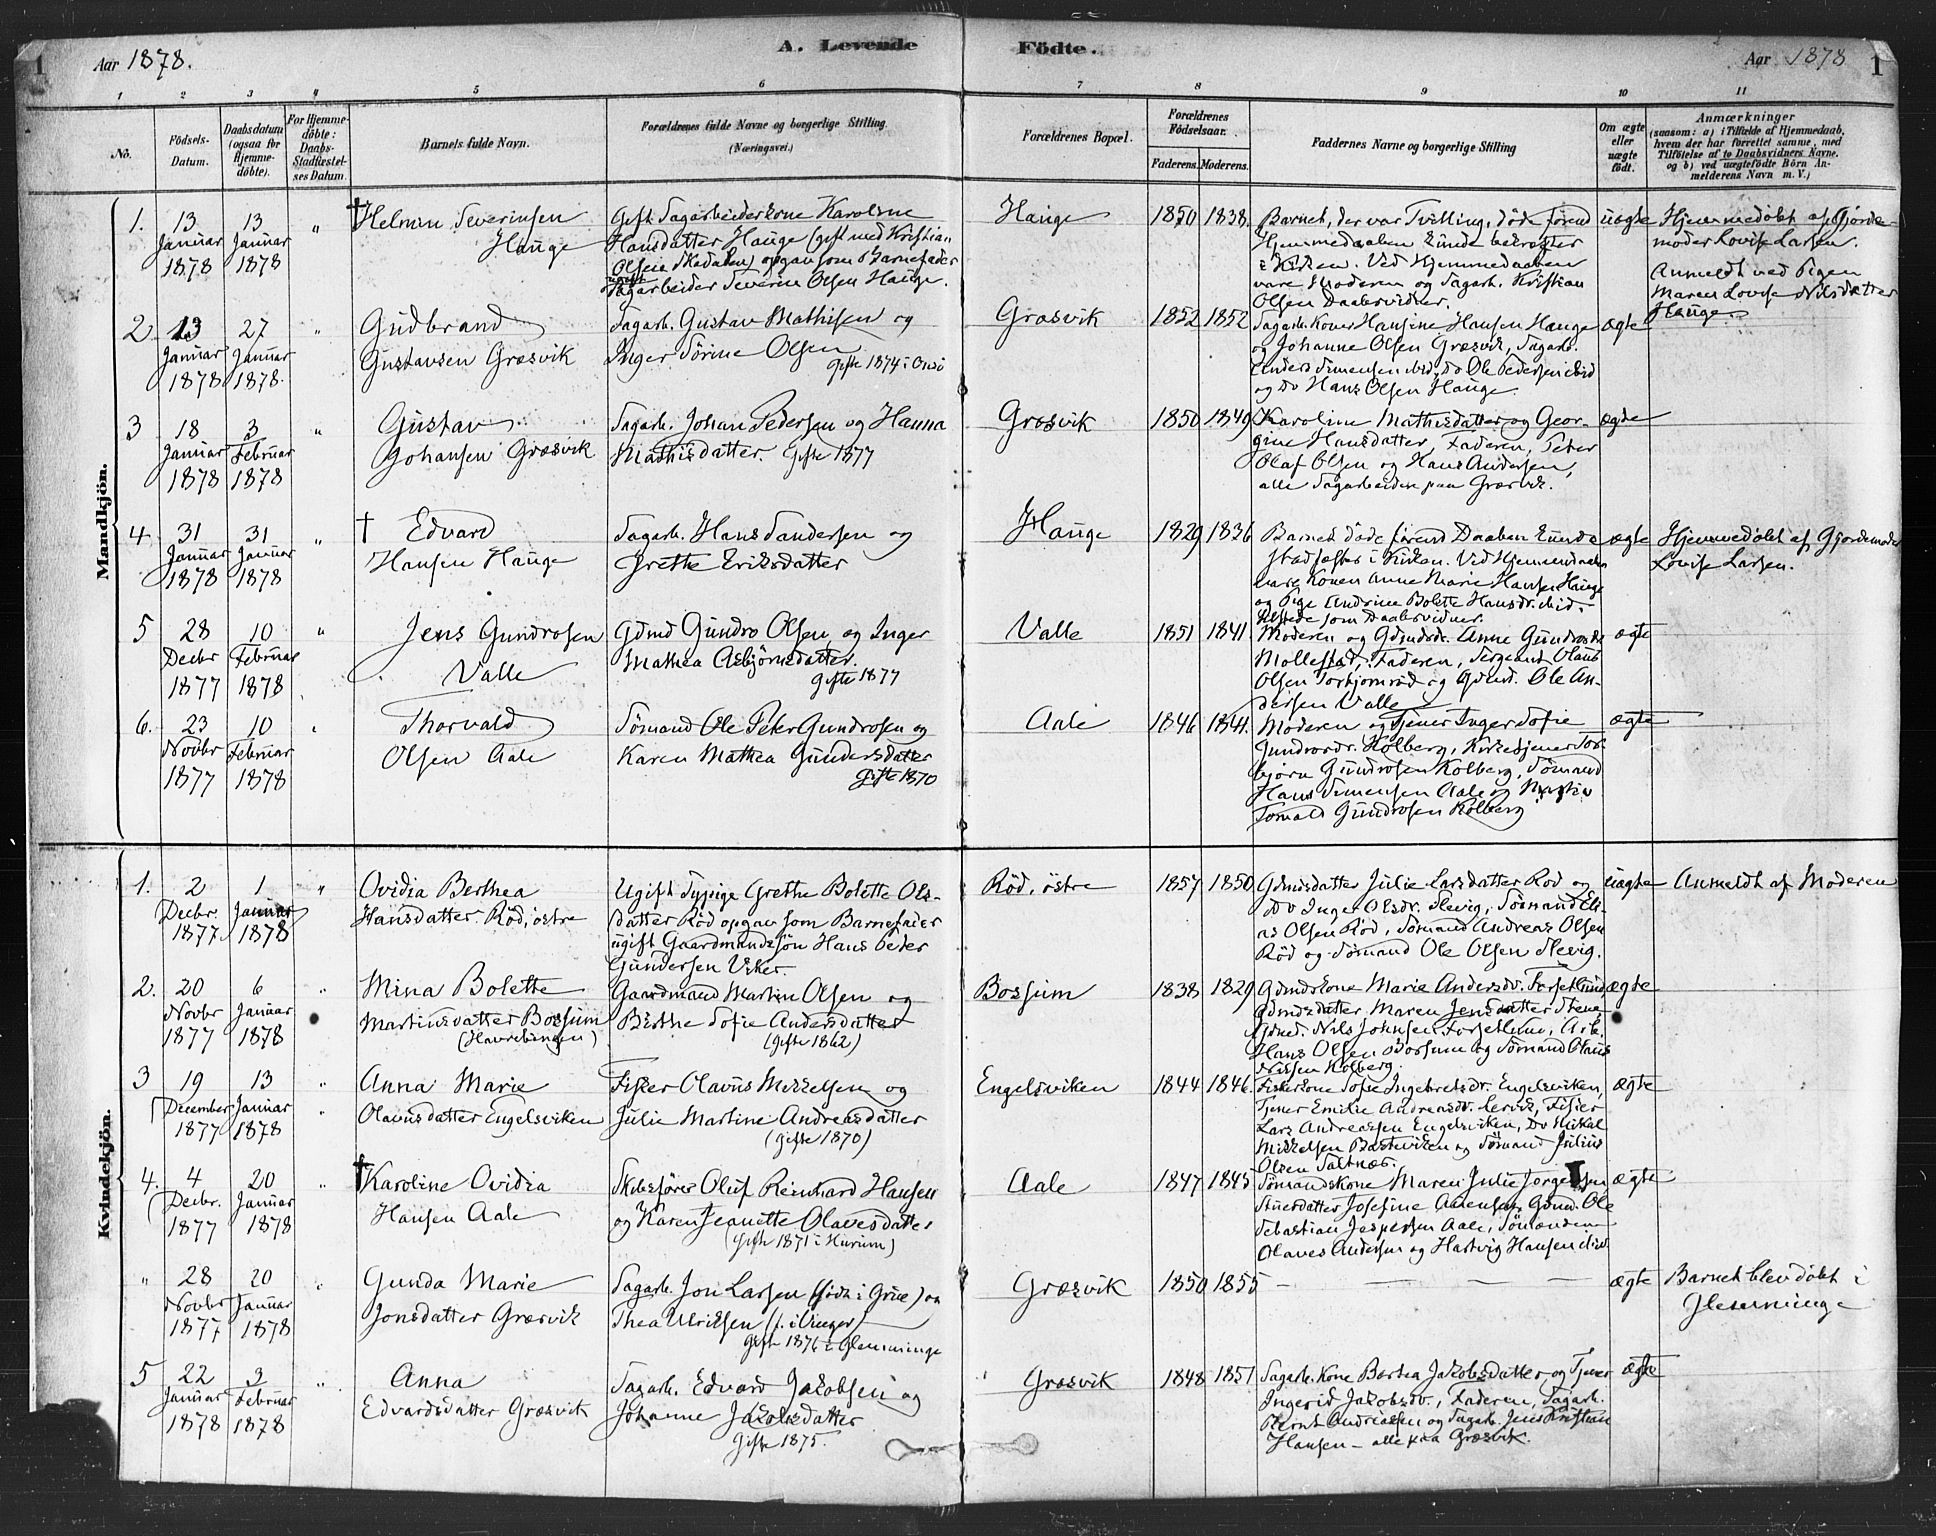 1 Aar 1878. A. Levende Födte. Aar 1878 1
1 2 3 4 5 6 7 8 9 10 11
No.
Födsels-
Datum.
Daabsdatum
(ogsaa for
Hjemme-
döbte).
For Hjemme-
döbte:
Daabs-
Stadfæstel-
ses Datum.
Barnets fulde Navn.
Forældrenes fulde Navne og borgerlige Stilling
(Næringsvei.)
Forældrenes Bopæl.
Forældrenes
Födselsaar.
Faderens. Moderens.
Faddernes Navne og borgerlige Stilling
Om ægte
eller
uægte
födt.
Anmærkninger
(saasom: a) i Tilfælde af Hjemmedaab,
hvem der har forrettet samme, med
Tilföielse af to Daabsvidners Navne.
og b) ved uægtefödte Börn An-
melderens Navn m. V.)
Mandkjön.
1. 13
Januar
1878
13
Januar
1878
"
† Helmin Severinsen
Hauge
Gift Sagarbeiderkone Karoline
Hansdatter Hauge (gift med Kristian
Olsen Skadalen) opgav som Barnefader
ugift
Sagarbeider Severin Olsen Hauge.
Hauge
1850 1838.
Barnet, der var Tvilling, døde førend
Hjemmedaaben kunde bekræftes
i Kirken. Ved Hjemmedaaben
vare Moderen og Sagarb. Kristian
Olsen Daabsvidner.
uægte
Hjemmedøbt af Gjorde-
moder Lovise Larsen.
Anmeldt ved Pigen
Maren Lovise Nilsdatter
Hauge
2 13
Januar
1878
27
Januar
1878.
"
Gudbrand
Gustavsen Græsvik
Sagarb. Gustav Mathisen og
Inger Sörine Olsen
Gifte 1874 i Onsö
Græsvik
1852 1852
Sagarb. Koner Hansine Hansen Hauge
og Johanne Olsen Græsvik, Sagarb.
Anders Simensen ibid, Do Ole Pedersen ibid
og Do Hans Olsen Hauge.
ægte
3 18
Januar
1878
3
Februar
1878
"
Gustav
Johansen Græsvik
Sagarb. Johan Pedersen og Hanna
Mathisdatter. Gifte 1877
Græsvik
1850 1849
Karoline Mathisdatter og Geor-
gine Hansdatter, Faderen, Peter
Olaf Olsen og Hans Andersen,
alle Sagarbeidere paa Græsvik.
ægte
4 31
Januar
1878
31
Januar
1878
"
† Edvard
Hansen Hauge
Sagarb. Hans Sandersen og
Grethe Eriksdatter
Hauge
1829 1836
Barnet døde førend Daaben kunde
stadfæstes i Kirken. Ved Hjemmedaaben
vare Konen Anne Marie Hansen Hauge
og Pige Andrine Bolette Hansdr. ibid.
tilstede som Daabsvidner.
ægte
Hjemmedøbt af Gjordemoder
Lovise Larsen.
5 28
Decbr
1877
10
Februar
1878
"
Jens Gundrosen
Valle
Gdmd Gundro Olsen og Inger
Mathea Asbjörnsdatter.
Gifte 1877
Valle
1851 1841.
Moderen og Gdmdsdr. Anne Gundrosdr
Mollestad, Faderen, Sergeant Olaus
Olsen Torbjörnröd og Gdmd. Ole An-
dersen Valle
ægte
6. 23
Novbr
1877
10
Februar
1878
Thorvald
Olsen Aale
Sömand Ole Peter Gundrosen og
Karen Mathea Gundersdatter
Gifte 1870
Aale
1846 1841.
Moderen og Tjener Inger Sofie
Gundrosdr. Kolberg, Kirketjener Tor-
björn Gundrosen Kolberg, Sömand
Hans Simensen Aale og
Gundrosen Kolberg
ægte
Kvindekjön.
1. 2
Decbr.
1877
1
Januar
1878
"
Ovidia Berthea
Hansdatter Röd, östre
Ugift Sypige Grethe Bolette Ols-
datter Röd opgav som Barnefader
ugift Gaardmandssön Hans Peder
Gundersen Uker.
Röd, östre
1857 1850
Gdmdsdatter Julie Larsdatter Röd og
Do Inger Olsdr. Slevig, Sömand Eli-
as Olsen Röd, Sömand Andreas Olsen
Röd og Sömand Ole Olsen Slevig.
uægte
Anmeldt af Moderen
2. 20
Novbr
1877
6
Januar
1878
"
Mina Bolette
Martinsdatter Bossum
(Havrebingen)
Gaardmand Martin Olsen og
Berthe Sofie Andersdatter
(Gifte 1862)
Bossum
1838 1829
Gdmdskone Marie Andersdr. Forsetlund
Gdmdsdatter Maren Jensdatter Stene
Gdmd. Nils Johnsen Forsetlund, Arb.
Hans Olsen Bossum og Sömand Olaus
Nilssen Kolberg.
ægte
3 19
December
1877
13
Januar
1878
"
Anna Marie
Olavusdatter Engelsviken
Fisker Olavus Mikkelsen og
Julie Martine Andreasdatter
(Gifte 1870)
Engelsviken
1844 1846.
Fiskerkone Sofie Ingebretsdr. Engelsviken,
Tjener Emilie Andreasdr. Lervik, Fisker
Lars Andreassen Engelsviken, Do Mikal
Mikkelsen Basteviken og Sömand Julius
Olsen Saltnæs.
ægte
4. 4
Decbr.
1877
20
Januar
1878
"
† Karoline Ovidia
Hansen Aale
Skibsförer Oluf Reinhard Hansen
og Karen Jeanette Olavesdatter
(Gifte 1871 i Hurum)
Aale
1847 1845
Sömandskone Maren Julie Jörgensen
Josefine Gdmd. Ole
Sebastian Jespersen Aale, Sömændene
Olaves Andersen og Hartvig Hansen ibid.
ægte
" 28
Novbr
1877
20
Januar
1878
"
Gunda Marie
Jonsdatter Græsvik
Sagarb. Jon Larsen (födt i Grue) og
Thea Ulriksen (f. i Vinger)
Gifte 1876 i Glemminge
Græsvik
1850 1855
— — — —
ægte
Barnet blev døbt i
Glemminge
5 22
Januar
1878
3
Februar
1878
"
Anna
Edvardsdatter Græsvik
Sagarb. Edvard Jakobsen og
Johanne Jakobsdatter
Gifte 1875.
Græsvik
1848 1851
Sagarb. Kone Berthea Jakobsdatter og Tjener
Ingerid Jakobsdr., Faderen, Sagarb.
Bernt Andreassen og Sagarb. Jens Kristian
Hansen — alle paa Græsvik.
ægte